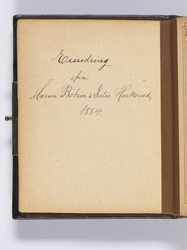 Erindring
fra
Maren Bøhn & Julie Haikerud,
1884